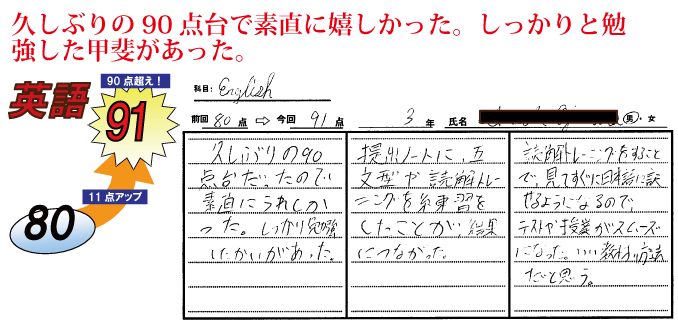 久しぶりの90点台で素直に嬉しかった。しっかりと勉
強した甲斐があった。
英語
90点超え！
91
11点アップ
80
科目: English
前回 80 点 ⇨ 今回 91 点 3 年 氏名 男・女
久しぶりの90
点台だったので
素直にうれしか
った。しっかり勉強
したかいがあった。
提出ノートに、五
文型や読解トレー
ニングを練習を
したことが、結果
につながった。
読解トレーニングをすること
で、見てすぐに日本語に訳
せるようになるので、
テストや授業がスムーズ
になった。いい教材、方法
だと思う。